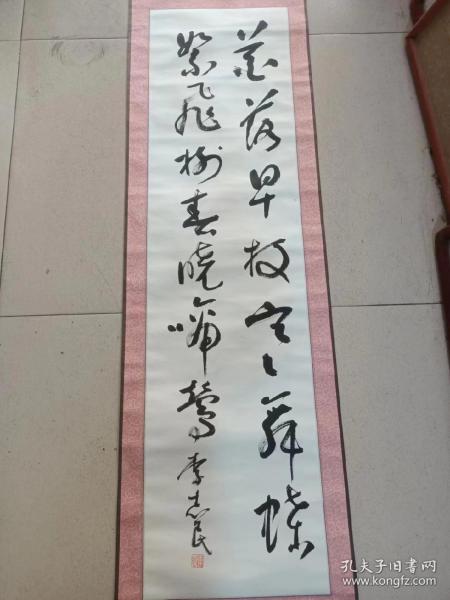 花落早枝舞蝶
絮飞树春晓啼莺
李志民
孔夫子旧书网
www.kongfz.com